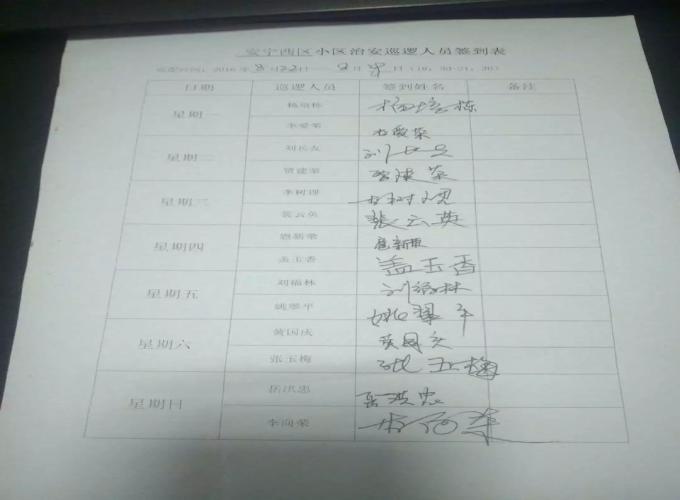 安宁西区小区治安巡逻人员签到表
巡逻时间:2016年8月22日 8月 日(19:30-21:30)
日期 巡逻人员 签到姓名 备注
星期一 杨培栋 杨培栋
李爱荣 李爱荣
星期二 刘长友 刘长友
贾建荣 贾建荣
星期三 李树理
张云英 张云英
星期四 恩新荣
孟玉香 孟玉香
星期五 刘福林 刘福林
姚翠平 姚翠平
星期六 黄国成 黄国成
张玉梅 张玉梅
星期日 岳洪忠 岳洪忠
李润荣